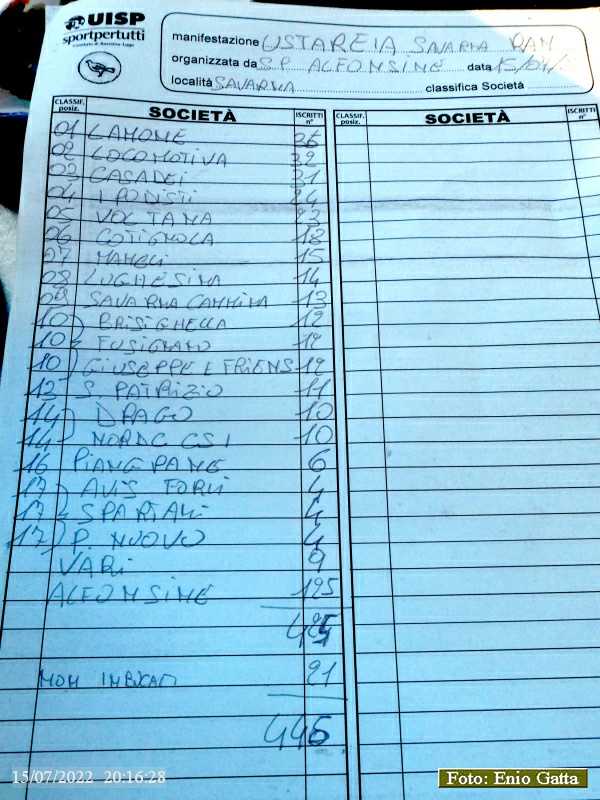 UISP
sportpertutti
Comitato di Ravenna-Lugo
manifestazione USTAREIA SAVARNA PAN
organizzata da S.P. ALFONSINE data 15/07/
località SAVARNA classifica Società
CLASSIF. posiz. SOCIETÀ ISCRITTI n° CLASSIF. posiz. SOCIETÀ ISCRITTI n°
01 LAMONE 36
02 LOCOMOTIVA 32
03 CASADEI 31
04 IPODISTI 24
05 VOLTANA 23
06 COTIGNOLA 18
07 MAMELI 15
08 LUGHESINA 14
09 SAVARNA CAMMINA 13
10 BRISIGHELLA 12
10 FUSIGNANO 12
10 GIUSEPPE E FRIENS 12
13 S. PATRIZIO 11
14 DRAGO 10
14 NORDC CSI 10
16 PIANGIPANE 6
17 AVIS FORLI 4
17 SPARTANI 4
17 P. NUOVO 4
VARI 9
ALFONSINE 125
425
NON 21
446
15/07/2022 20:16:28
Foto: Enio Gatta